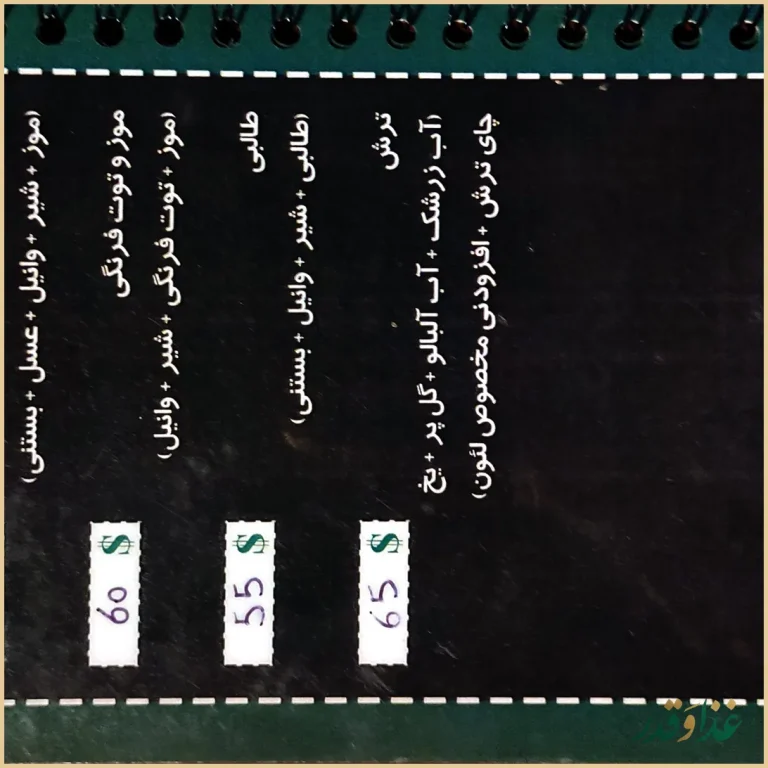 (موز + شیر + وانیل + عسل + بستنی)
موز و توت فرنگی
$ 60
(موز + توت فرنگی + شیر + وانیل)
طالبی
$ 55
(طالبی + شیر + وانیل + بستنی)
ترش
$ 65
(آب زرشک + آب آلبالو + گل پر + یخ
چای ترش + افزودنی مخصوص لئون)
غذا و قدم